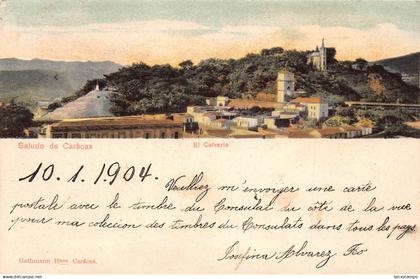 Saludo de Carácas
El Calvario
10.1.1904.
Veuillez m'envoyer une carte
postale avec le timbre du Consulat du côté de la vue
pour ma coleccion des timbres du Consulats dans tous les pays
Josefina Alvarez
Gathmann Hnos Carácas.